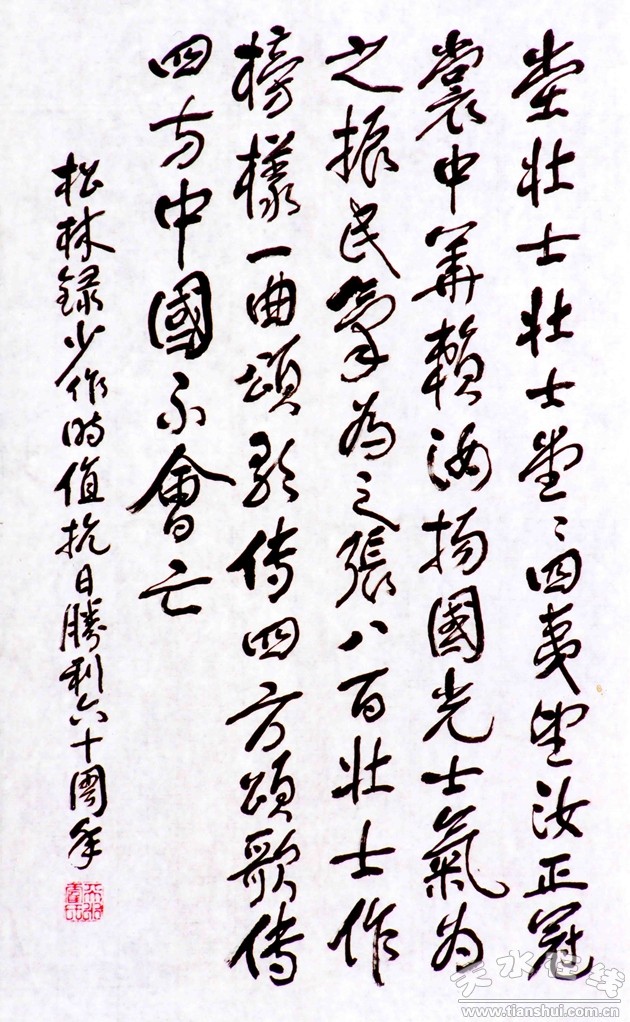 堂壮士壮士堂〻四夷望汝正冠
裳中華賴汝揚國光士氣為
之振民氣為之張八百壮士作
榜樣一曲頌歌傳四方頌歌傳
四方中國不會亡
松林録少作時值抗日勝利六十周年
天水在线
www.tianshui.com.cn